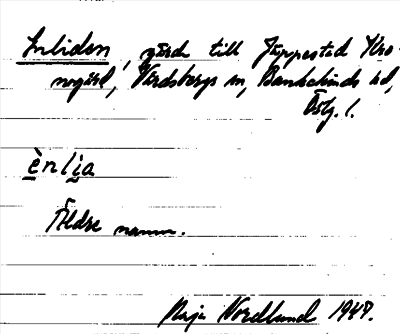 Enliden, gärde till Jäppestad Kro-
nogård, Vårdsbergs sn, Bankekinds hd,
Östg. l.
ènli̯a
Äldre namn.
Maja Nordlund 1947.